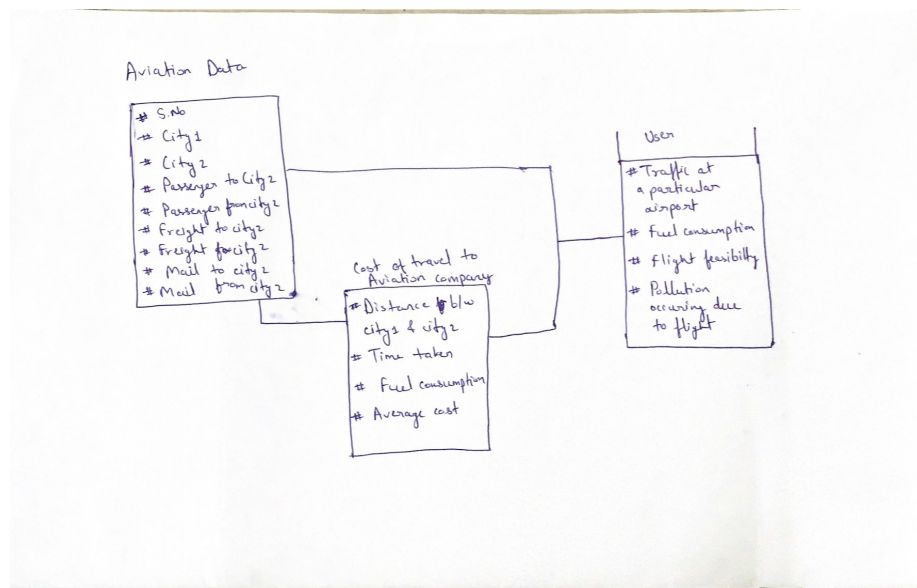 Aviation Data
# S.No
# City1
# City2
# Passenger to City2
# Passenger from city2
# Freight to city2
# Freight city2
# Mail to city2
# Mail from city2
Cost of travel to
Aviation company
# Distance b/w
city1 & city2
# Time taken
# Fuel consumption
# Average cost
User
# Traffic at
a particular
airport
# Fuel consumption
# Flight feasibility
# Pollution
occuring due
to flight